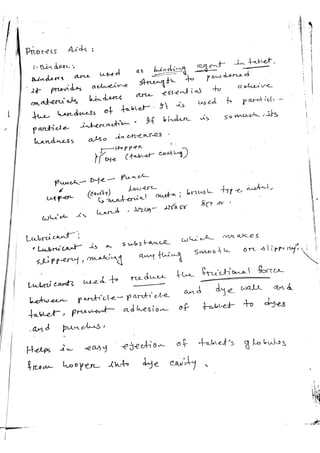 Process Aids :
1. Binders :
Binders are used as binding agent in tablet.
It provides acheive strength to powdered
materials binders are essential to acheive
the hardness of tablet. It is used to particle-
particle interaction. If binder is so much its
hardness also increases.
Hopper
Dye (tablet coating)
Punch - Dye - Punch
upper (cavity) lowers
material meta; brush type, metal,
which is hard.
Lubricant :
• Lubricant is a substance which makes
slippery, making anything smooth or slippery.
Lubricants used to reduce the frictional force
between particle-particle and dye wall and
tablet, prevent adhesion of tablet to dyes
and punches.
Helps in easy ejection of tablet's globules
from hooper into dye cavity.